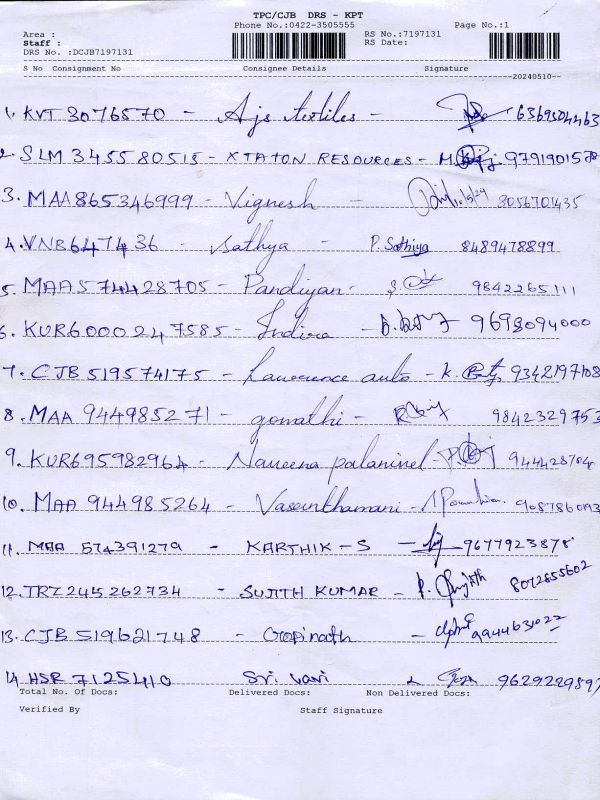 TPC/CJB DRS - KPT
Phone No.:0422-3505555 Page No.:1
Area : RS No.:7197131
Staff : RS Date:
DRS No. :DCJB7197131
S No Consignment No Consignee Details Signature
--20240510--
1. KVT 3076570 - Ajs textiles - 6369504463
2. SLM 345580515 - XTATON RESOURCES - 9791901578
3. MAA865346999 - Vignesh 8056701435
4. VNB647436 - Sathya - P. Sathiya 8489478899
5. MAA574428705 - Pandiyan - 9842265111
6. KUR6000247585 - Indira - 9698094000
7. CJB 519574175 - Lawrence auto - 9342197108
8. MAA 944985271 - gomathi - 9842329753
9. KUR695982964 - Naveena palanivel - 944428704
10. MAA 944985264 - Vasanthamani -
11. MAA 574391279 - KARTHIK - S - 9677923878
12. TRZ 245262734 - SUJITH KUMAR - 8072855602
13. CJB 519621748 - Gopinath - 9944631022
14. HSR 7125410 Sri vari 9629229897
Total No. Of Docs: Delivered Docs: Non Delivered Docs:
Verified By Staff Signature